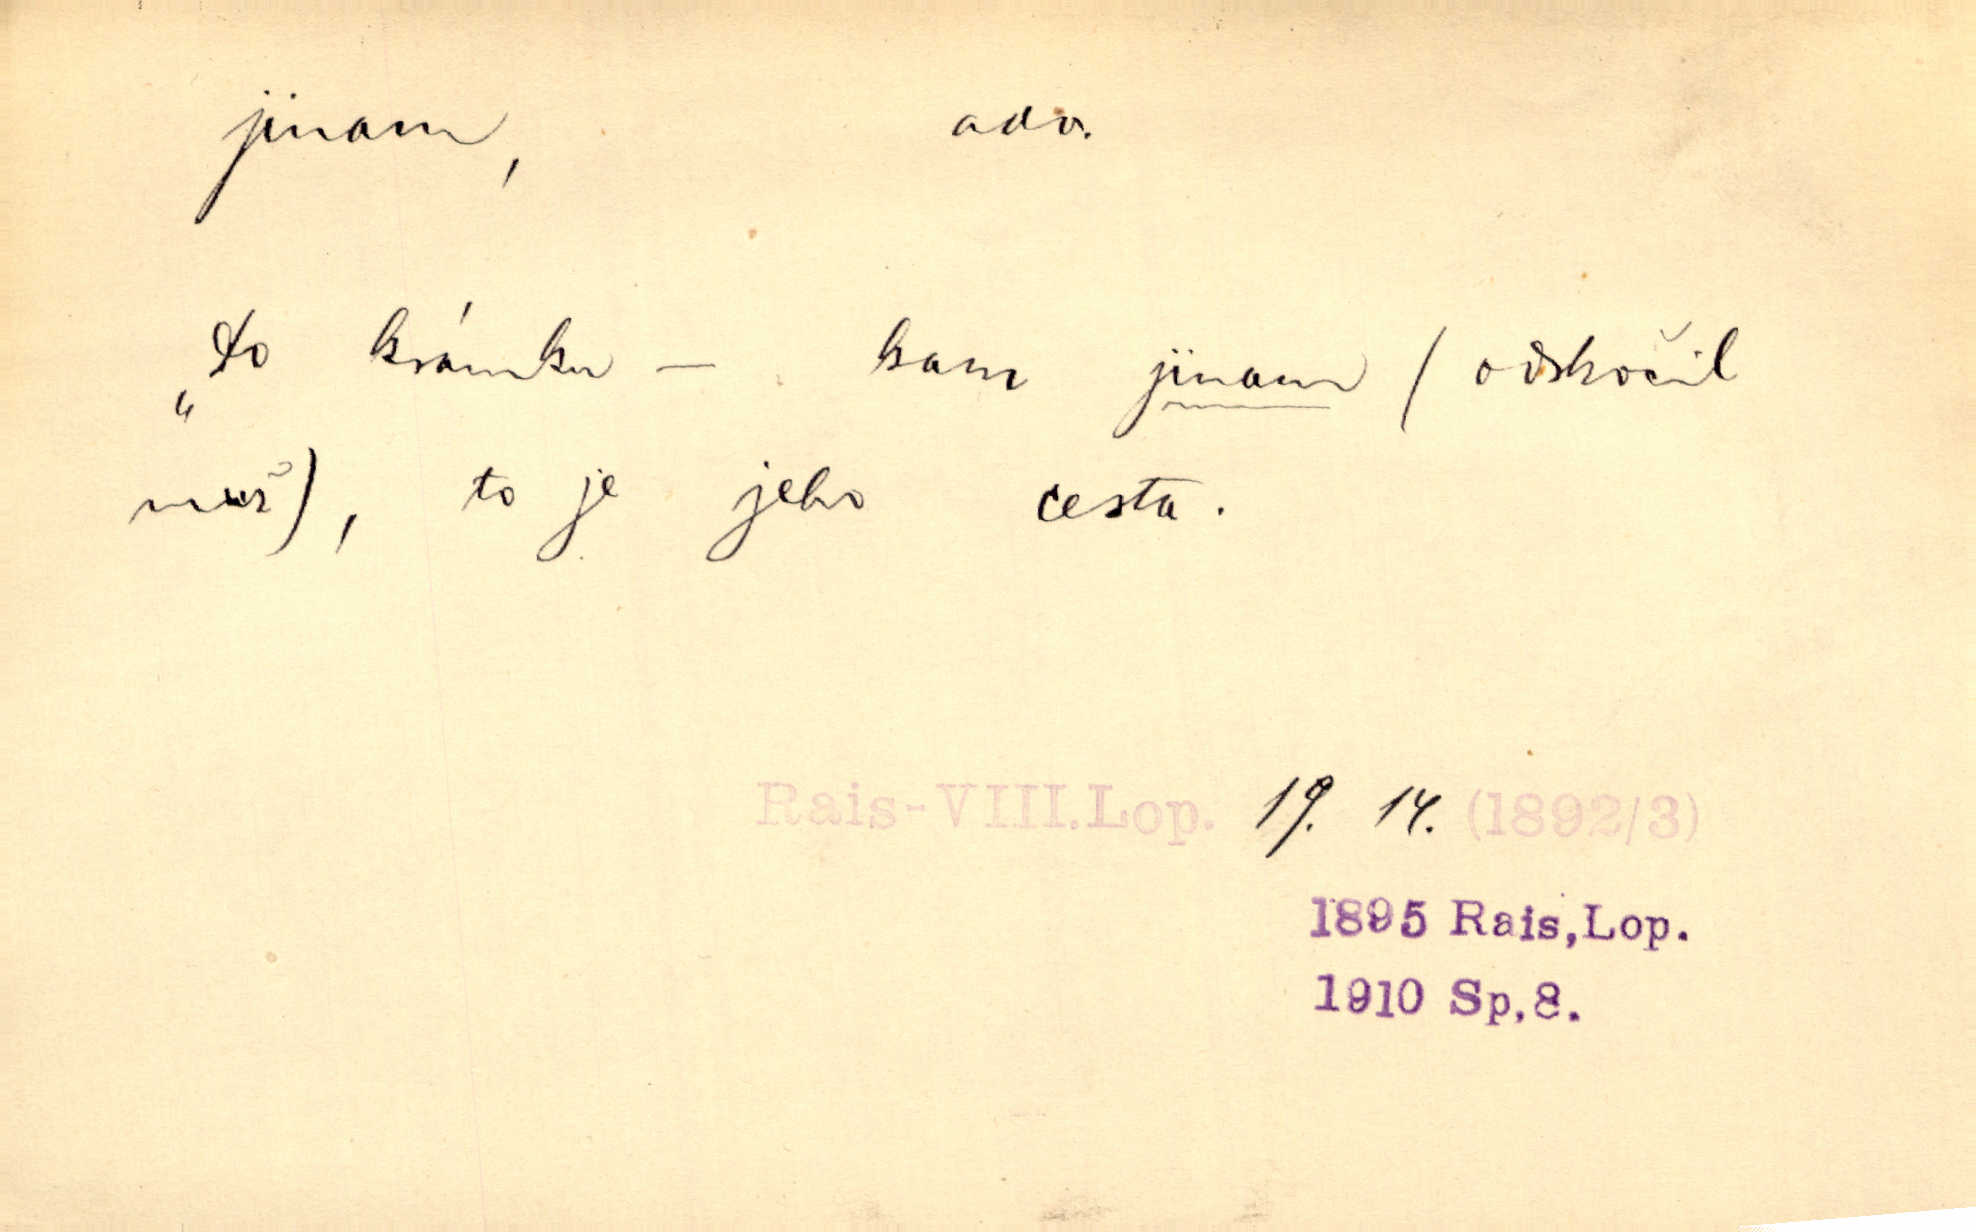 jinam, adv.
„Do krámku — kam jinam (odskočil
muž), to je jeho cesta.
Rais-VIII.Lop. 19. 14. (1892/3)
1895 Rais,Lop.
1910 Sp,8.